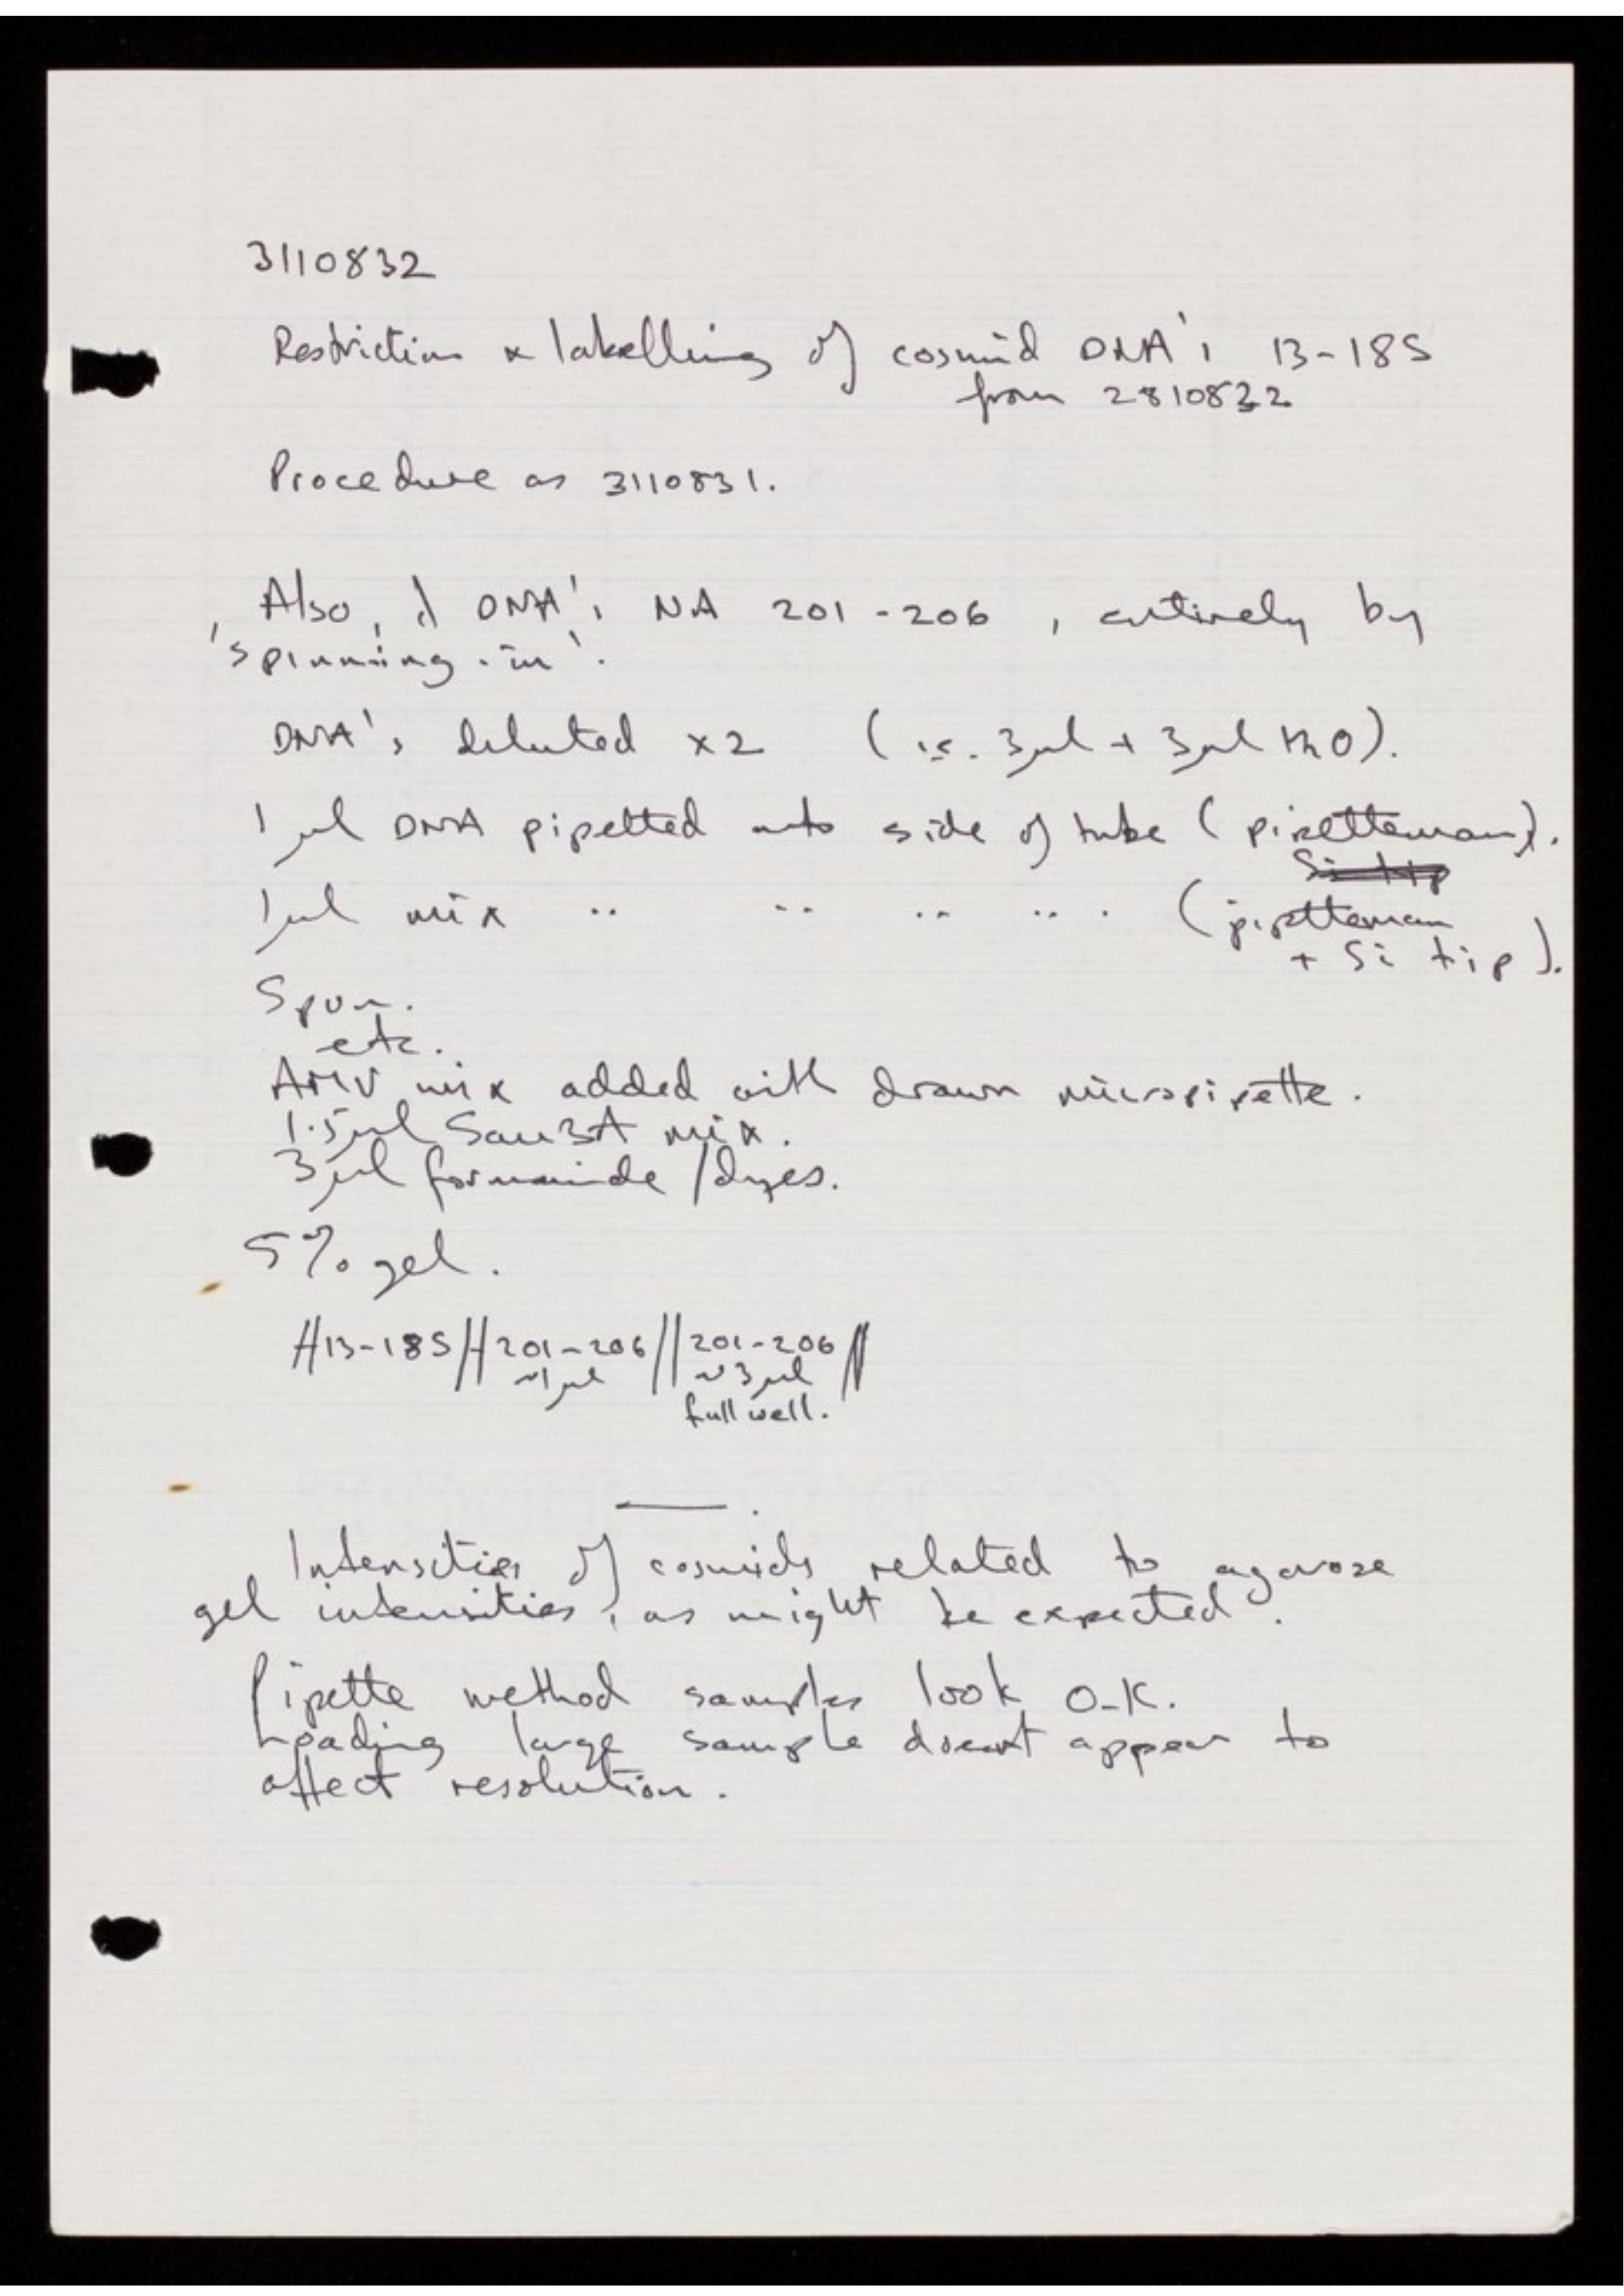 3110832
Restriction & labelling of cosmid DNA's 13-18S
from 2810832
Procedure as 3110831.
Also, of DNA's NA 201-206, entirely by
'spinning-in'.
DNA's diluted x2 (i.e. 3µl + 3µl H2O).
1µl DNA pipetted onto side of tube (pipetteman).
1µl mix " " " " . (pipetteman
+ Si tip).
Spun.
etc.
AMV mix added with drawn micropipette.
1.5µl Sau3A mix.
3µl formamide/dyes.
5% gel.
//13-18S//201-206//201-206//
~1µl ~3µl
full well.
Intensities of cosmids related to agarose
gel intensities, as might be expected.
Pipette method samples look O.K.
Loading large sample doesnt appear to
affect resolution.